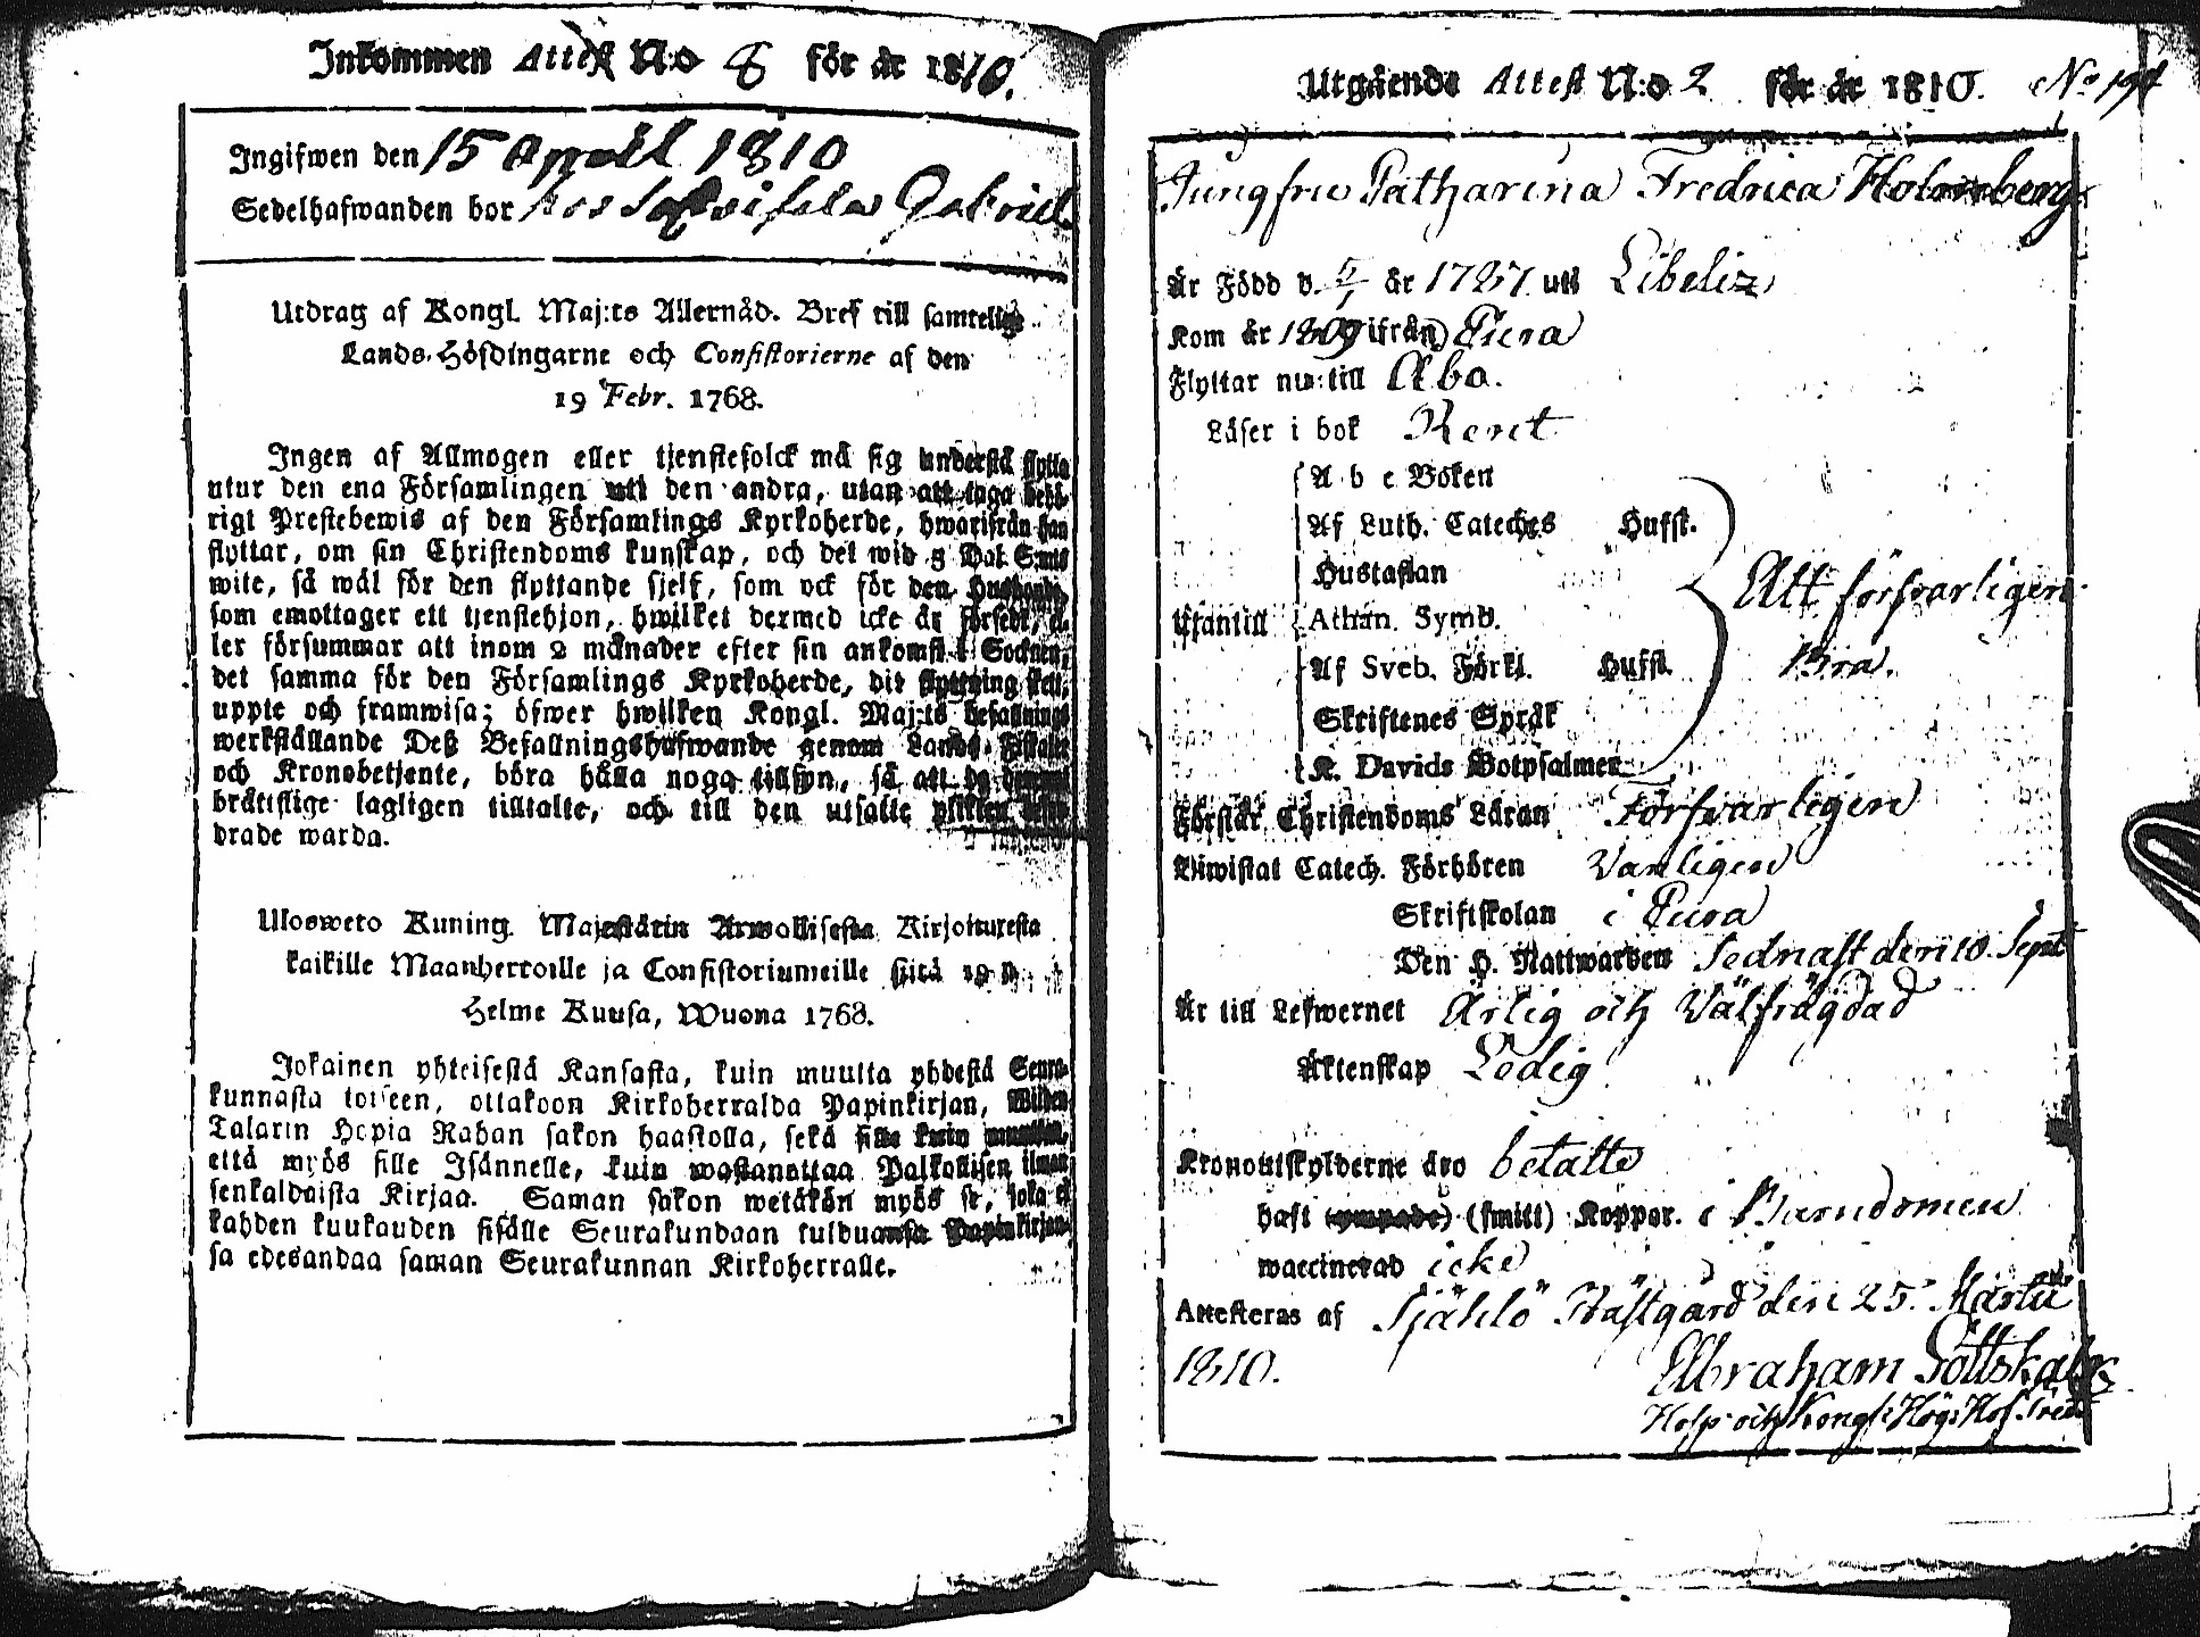 Inkommen Attest N:o 8 för år 1810.
Ingifwen den 15 April 1810
Sedelhafwanden bor hos Gabriel
Utdrag af Kongl. Maj:ts Allernåd. Bref till samtelige
Lands-Höfdingarne och Consistorierne af den
19 Febr. 1768.
Ingen af Allmogen eller tjenstefolck må sig understå flytta
utur den ena Församlingen uti den andra, utan att taga behö-
rigt Prestebewis af den Församlings Kyrkoherde, hwarifrån han
flyttar, om sin Christendoms kunskap, och det wid 3 Dal. S:mts
wite, så wäl för den flyttande sjelf, som ock för den Husbonde,
som emottager ett tjenstehjon, hwilket dermed icke är försedt, el-
ler försummar att inom 2 månader efter sin ankomst i Socknen,
det samma för den Församlings Kyrkoherde, dit flyttning skett,
uppte och framwisa; öfwer hwilken Kongl. Maj:ts befallnings
werkställande Deß Befallningshafwande genom Lands-Fiskaler
och Kronobetjente, böra hålla noga tillsyn, så att de
brättslige lagligen tilltalte, och till den utsatte plikten
drade warda.
Ulosweto Kuning. Majestätin Armollisesta Kirjoituresta
kaikille Maanherroille ja Consistoriumeille siitä 19 p.
Helme Kuusa, Wuona 1768.
Jokainen yhteisestä Kansasta, kuin muutta yhdestä Seura-
kunnasta toiseen, ottakoon Kirkoherralda Papinkirjan,
Talarin Hopia Rahan sakon haastolla, sekä sille kuin muuttaa,
että myös sille Isännelle, kuin wastanottaa Palkollisen ilman
senkaldaista Kirjaa. Saman sakon wetäkön myös se, joka ei
kahden kuukauden sisälle Seurakundaan tulduansa Papinkirjan-
sa edesandaa saman Seurakunnan Kirkoherralle.
Utgående Attest N:o 2 för år 1810. No 194
Jungfru Catharina Fredrica Holmberg
Är Född d. 5/1 år 1787 uti Libeliz
Kom år 1809 ifrån Eura
Flyttar nu till Åbo.
Läser i bok Rent
A b c Boken
Af Luth. Cateches Hufst.
Hustaflan
Utantill Athan. Symb.
Af Sveb. Förkl. Hufst.
Skriftenes Språk
K. Davids Botpsalmer
Allt försvarligen
bra.
Förstår Christendoms Läran Försvarligen
Biwistat Catech. Förhören Vanligen
Skriftskolan i Eura
Den H. Nattwarden Sednast den 10. Sept
Är till Lefwernet Ärlig och Välfrägdad
Äktenskap Ledig
Kronoutskylderne äro betalte
haft (ympade) (smitt) Koppor. i Barndomen
waccinerad icke
Attesteras af Själö Prästgård den 25. Martii
1810. Abraham Gottskalk
Hosp. och Kongl. Hög. Hof Pred.